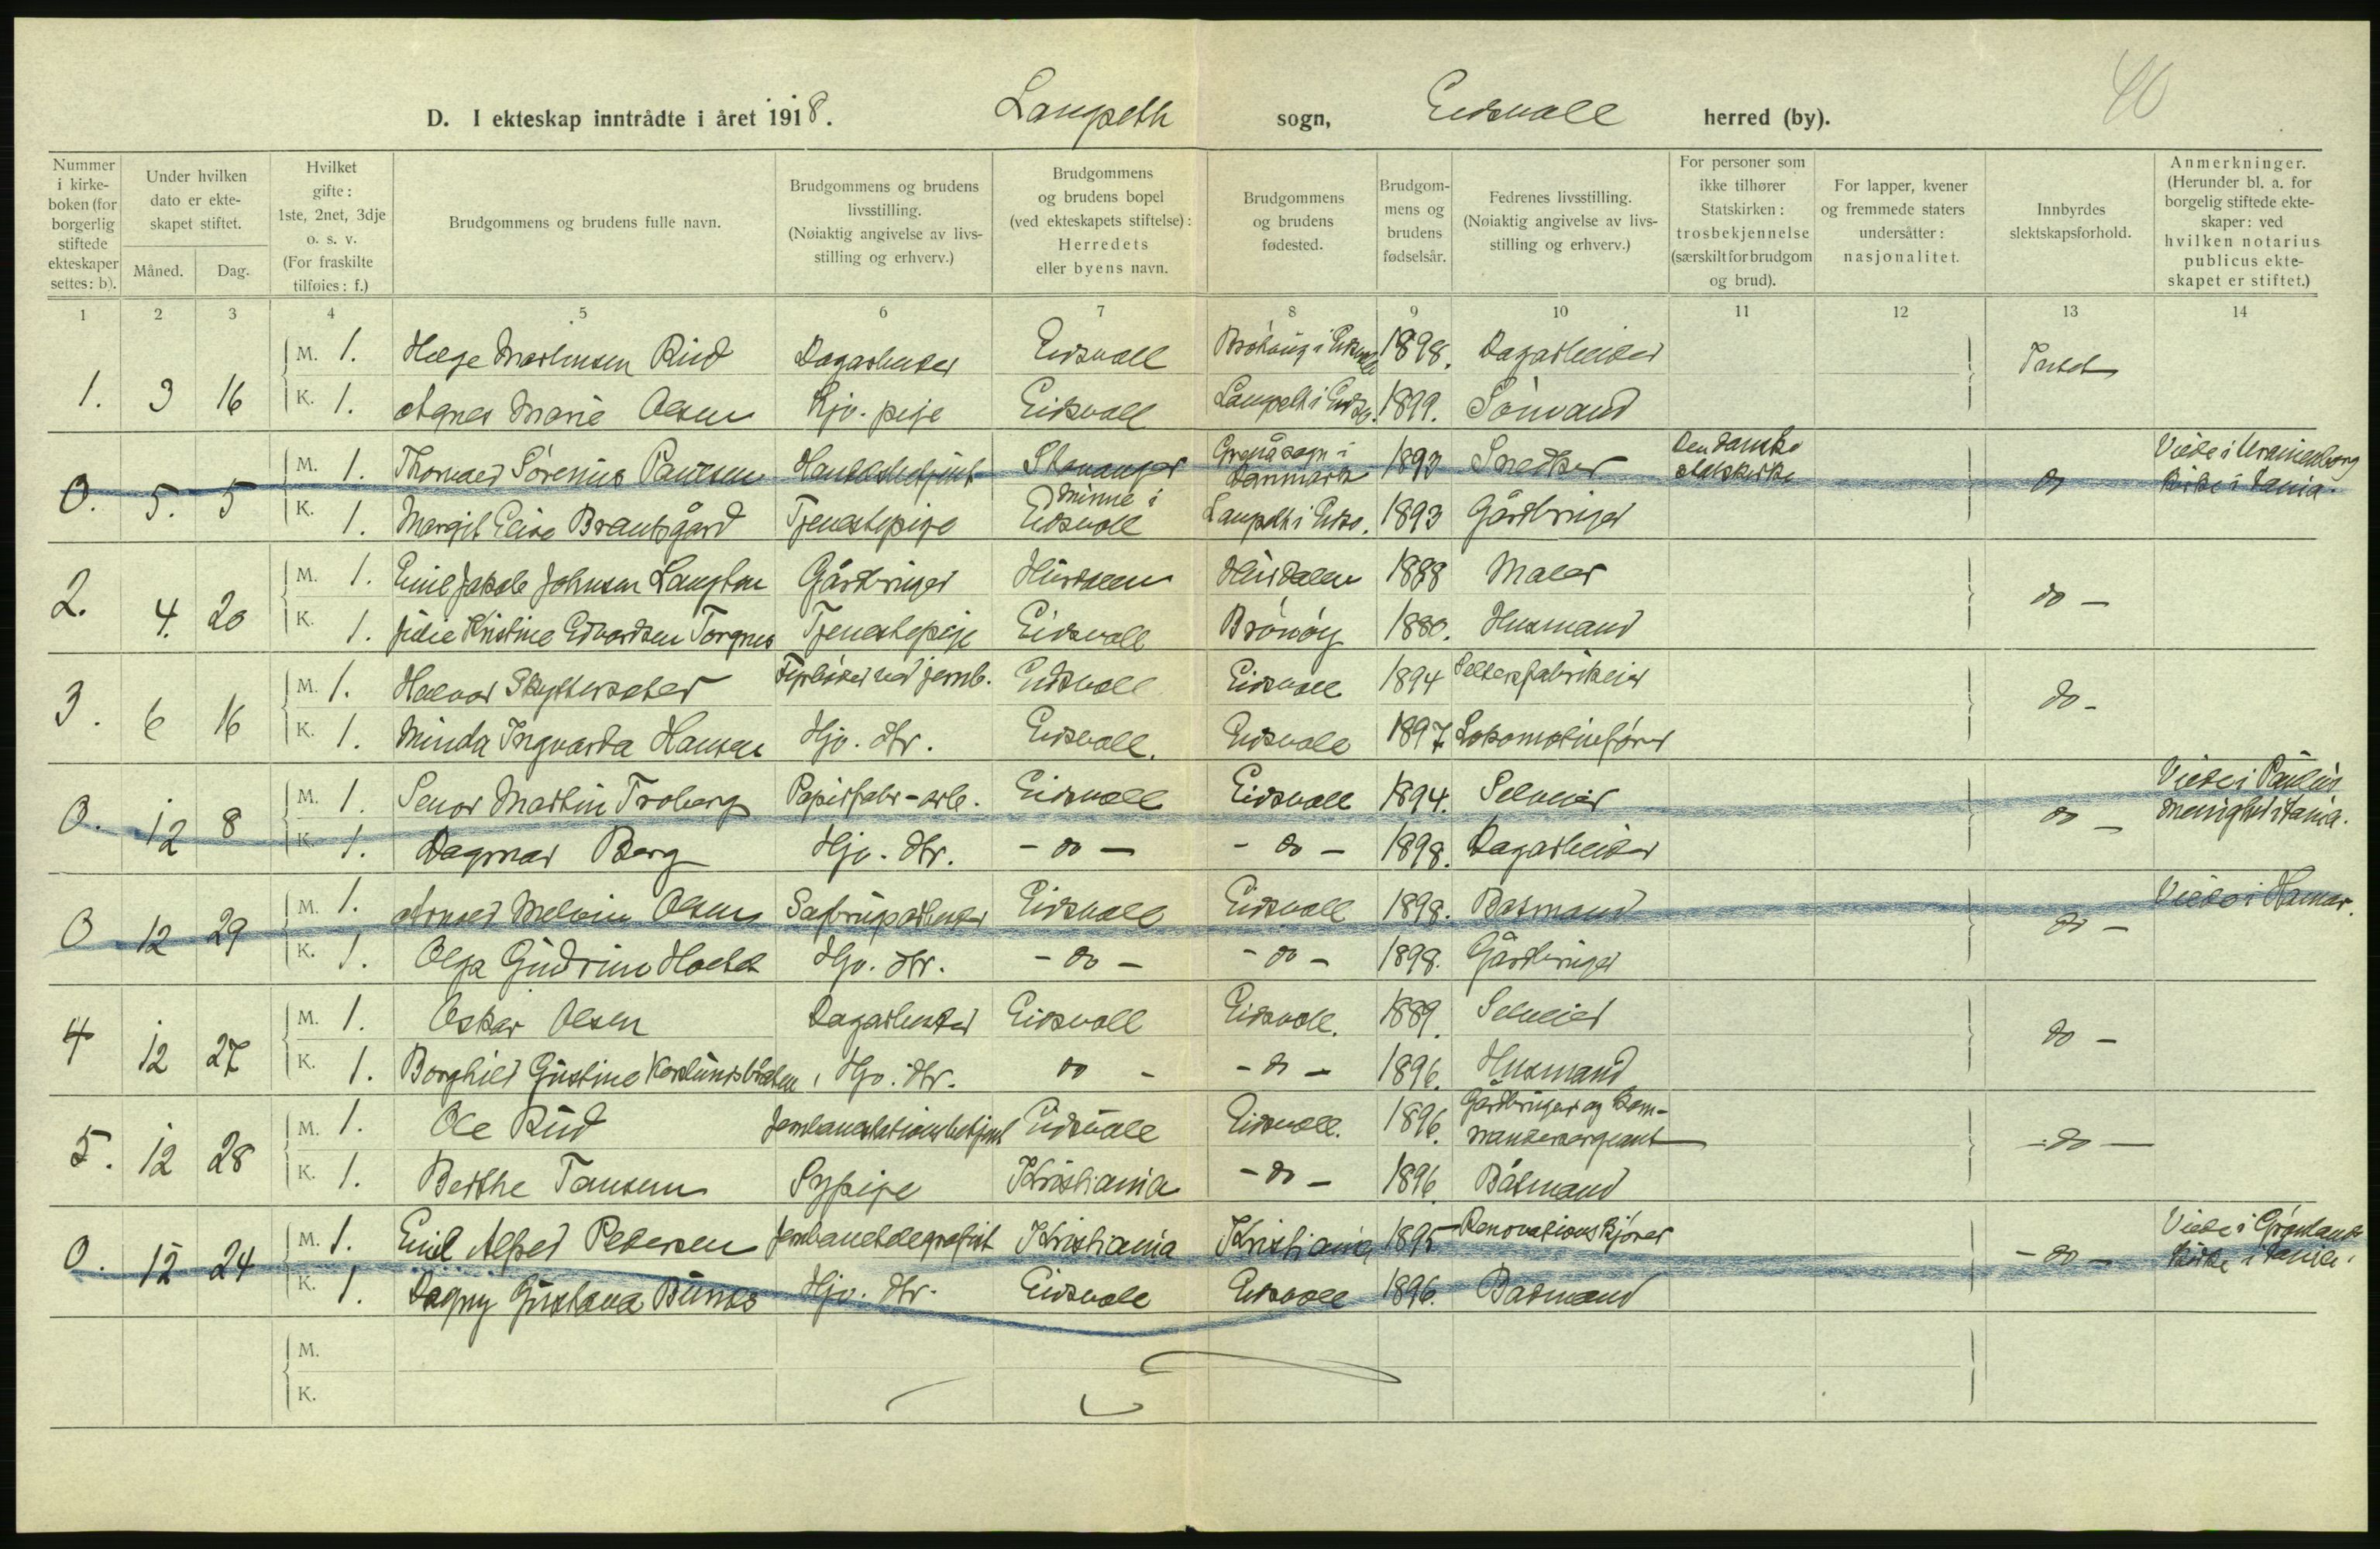 40
D. I ekteskap inntrådte i året 1918. Langseth sogn, Eidsvoll herred (by).
Nummer i kirkeboken (for borgerlig stiftede ekteskaper settes: b).
Under hvilken dato er ekteskapet stiftet.
Måned. Dag.
Hvilket gifte: 1ste, 2net, 3dje o. s. v. (For fraskilte tilføies: f.)
Brudgommens og brudens fulle navn.
Brudgommens og brudens livsstilling. (Nøiaktig angivelse av livsstilling og erhverv.)
Brudgommens og brudens bopel (ved ekteskapets stiftelse): Herredets eller byens navn.
Brudgommens og brudens fødested.
Brudgommens og brudens fødselsår.
Fedrenes livsstilling. (Nøiaktig angivelse av livsstilling og erhverv.)
For personer som ikke tilhører Statskirken: trosbekjennelse (særskilt for brudgom og brud).
For lapper, kvener og fremmede staters undersåtter: nasjonalitet.
Innbyrdes slektskapsforhold.
Anmerkninger. (Herunder bl. a. for borgelig stiftede ekteskaper: ved hvilken notarius publicus ekteskapet er stiftet.)
1 2 3 4 5 6 7 8 9 10 11 12 13 14
1. 3 16 M. 1. Helge Martinsen Rud Dagarbeider Eidsvoll i Eidsvoll 1898. Dagarbeider Intet
K. 1. Agnes Marie Olsen Hjv. pige Eidsvoll Langseth i Eidsv. 1899.
0. 5. 5 M. 1. Sørenius Paulsen Handelsbetjent Stavanger Grenå sogn i Danmark 1893 Snedker Den danske statskirke do Viede i Uranienborg kirke i Kania.
K. 1. Margit Elise Brantsgård Tjenestepige Minne i Eidsvoll Langseth i Eidsv. 1893 Gårdbruger
2. 4. 20 M. 1. Emil Jakob Johnsen Gårdbruger Hurdalen Hurdalen 1888 Maler do —
K. 1. Julie Kristine Edvardsen Torgnes Tjenestepige Eidsvoll Brönöy 1880. Husmand
3. 6 16 M. 1. Halvor Skyttersæter Fyrbøder ved jernb. Eidsvoll Eidsvoll 1894 do -
K. 1. Minda Ingvarda Hansen Hjv. dtr. Eidsvoll. Eidsvoll 1897. Lokomotivfører
0. 12 8 M. 1. Senor Martin Troberg Papirfabr-arb. Eidsvoll Eidsvoll 1894. Selveier do — Viede i Paulus menighet i Kania.
K. 1. Dagmar Berg Hjv. dtr. - do — - do — 1898. Dagarbeider
0 12 29 M. 1. Melvin Olsen Sagbrugsarbeider Eidsvoll Eidsvoll 1898. Batmand do — Viede i Hamar.
K. 1. Olga Gudrun Hjv. dtr. - do - - do - 1898. Gårdbruger
4 12 27 M. 1. Oskar Olsen Dagarbeider Eidsvoll Eidsvoll. 1889. Selveier do -
K. 1. Borghild Gustine Hjv. dtr. do - - do - 1896. Husmand
5. 12 28 M. 1. Ole Rud Jernbanestationsbetjent Eidsvoll Eidsvoll. 1896. Gårdbruger og Kommandersergeant - do -
K. 1. Berthe Sypige Kristiania - do - 1896. Båtmand
0. 12 24 M. 1. Emil Alfred Petersen Jernbanetelegrafist Kristiania Kristiania 1895 Renovationskjører - do - Viede i Grønlands kirke i Kania.
K. 1. Dagny Gustava Hjv. dtr. Eidsvoll Eidsvoll 1896. Batmand
M.
K.